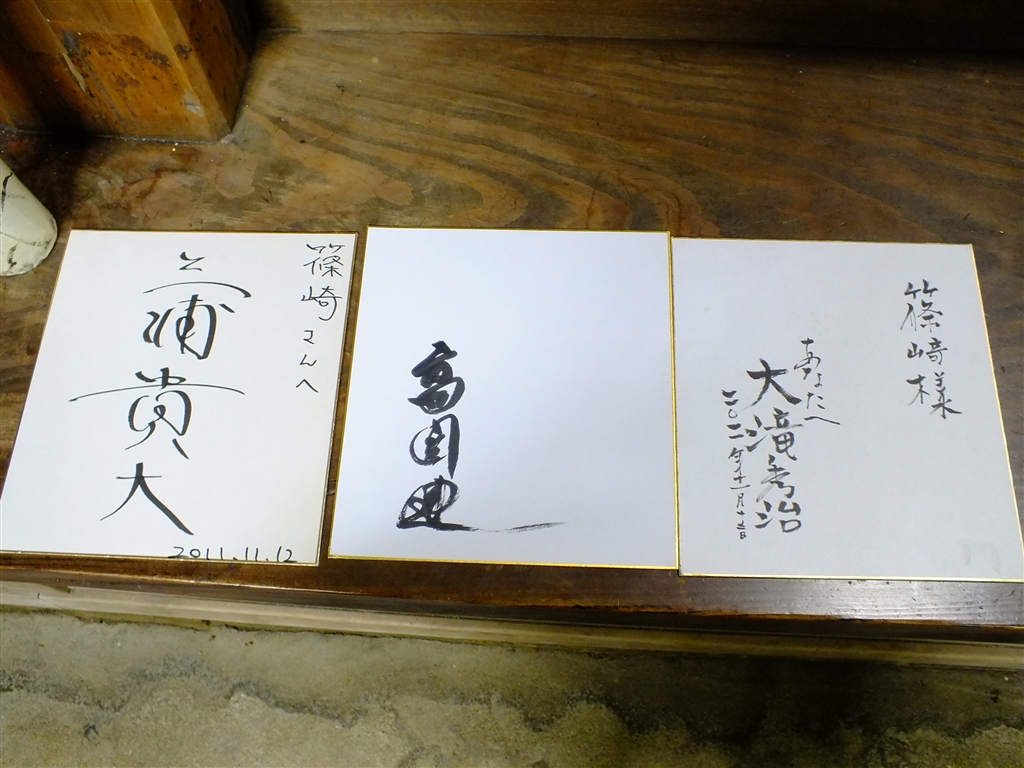 篠崎さんへ
三浦貴大
2011.11.12
高倉健
篠﨑様
あなたへ
大滝秀治
二〇一一年十一月